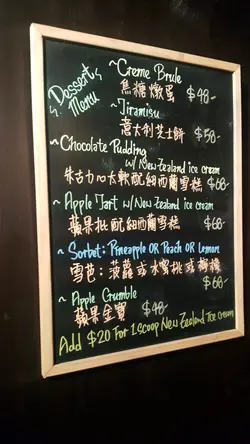 Dessert Menu
~ Creme Brule
焦糖燉蛋 $48-
~ Tiramisu
意大利芝士餅 $58-
~ Chocolate Pudding
w/ New Zealand ice cream
朱古力心太軟配紐西蘭雪糕 $68-
~ Apple Tart w/ New Zealand ice cream
蘋果批配紐西蘭雪糕 $68-
~ Sorbet: Pineapple OR Peach OR Lemon
雪芭：菠蘿或水蜜桃或檸檬
$68-
~ Apple Crumble
蘋果金寶 $48-
Add $20 For 1 scoop New Zealand Ice Cream